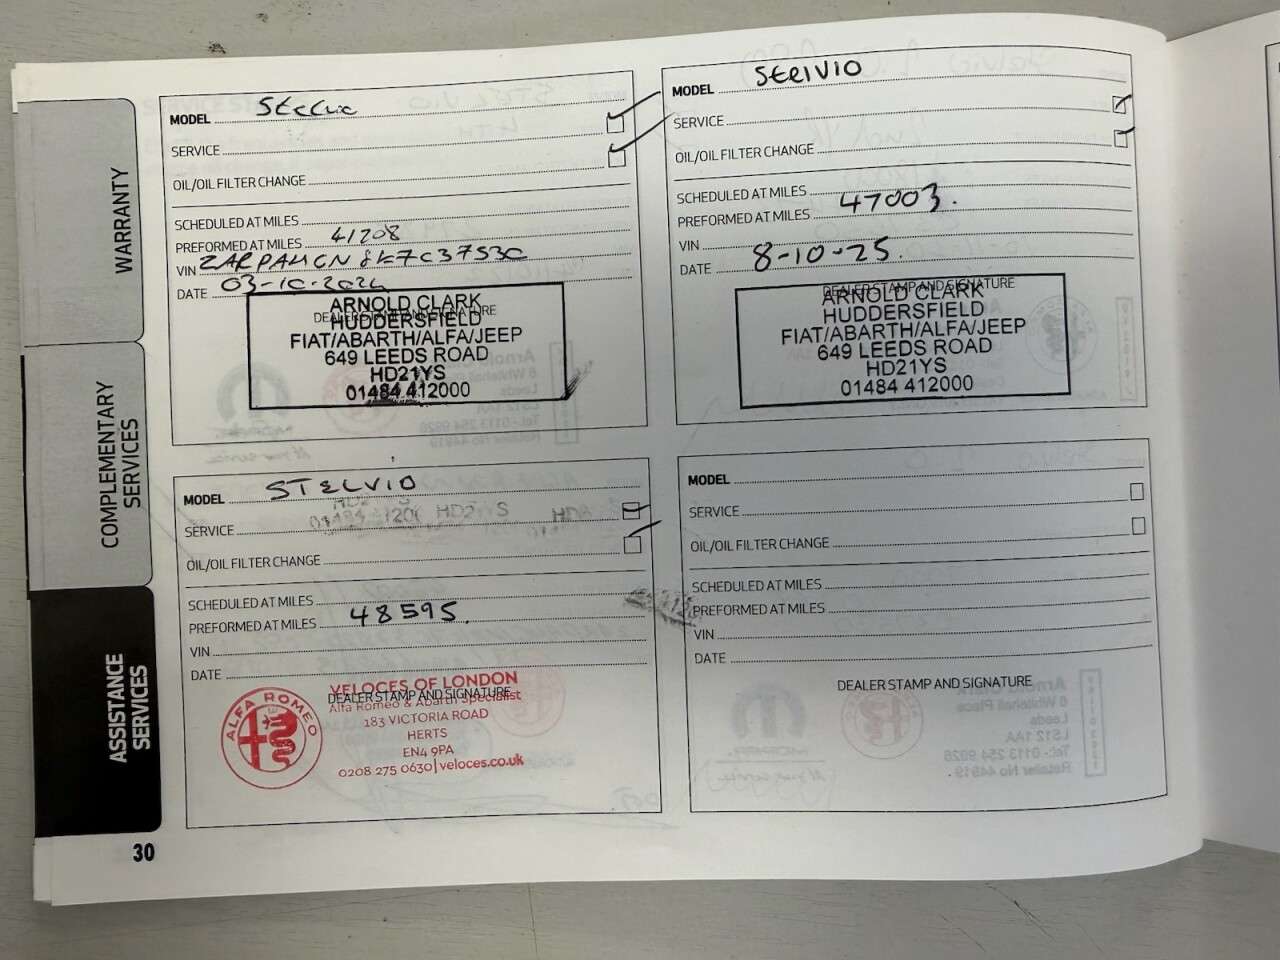 WARRANTY
COMPLEMENTARY
SERVICES
ASSISTANCE
SERVICES
MODEL Stelvio
SERVICE
OIL/OIL FILTER CHANGE
SCHEDULED AT MILES
PREFORMED AT MILES 41208
VIN
DATE 03-10-2024
DEALER STAMP AND SIGNATURE
ARNOLD CLARK
HUDDERSFIELD
FIAT/ABARTH/ALFA/JEEP
649 LEEDS ROAD
HD21YS
01484 412000
MODEL STElVIO
SERVICE
OIL/OIL FILTER CHANGE
SCHEDULED AT MILES
PREFORMED AT MILES 47003.
VIN
DATE 8-10-25.
DEALER STAMP AND SIGNATURE
ARNOLD CLARK
HUDDERSFIELD
FIAT/ABARTH/ALFA/JEEP
649 LEEDS ROAD
HD21YS
01484 412000
MODEL STELVIO
SERVICE
OIL/OIL FILTER CHANGE
SCHEDULED AT MILES
PREFORMED AT MILES 48595.
VIN
DATE
DEALER STAMP AND SIGNATURE
ALFA ROMEO
VELOCES OF LONDON
Alfa Romeo & Abarth Specialist
183 VICTORIA ROAD
HERTS
EN4 9PA
0208 275 0630 | veloces.co.uk
MODEL
SERVICE
OIL/OIL FILTER CHANGE
SCHEDULED AT MILES
PREFORMED AT MILES
VIN
DATE
DEALER STAMP AND SIGNATURE
30